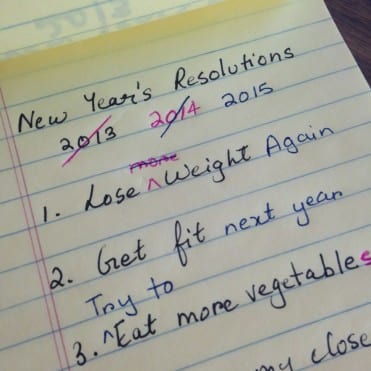 New Year's Resolutions
2013 2014 2015
more
1. Lose ^ Weight Again
2. Get fit next year
Try to
3. ^ Eat more vegetables
my close